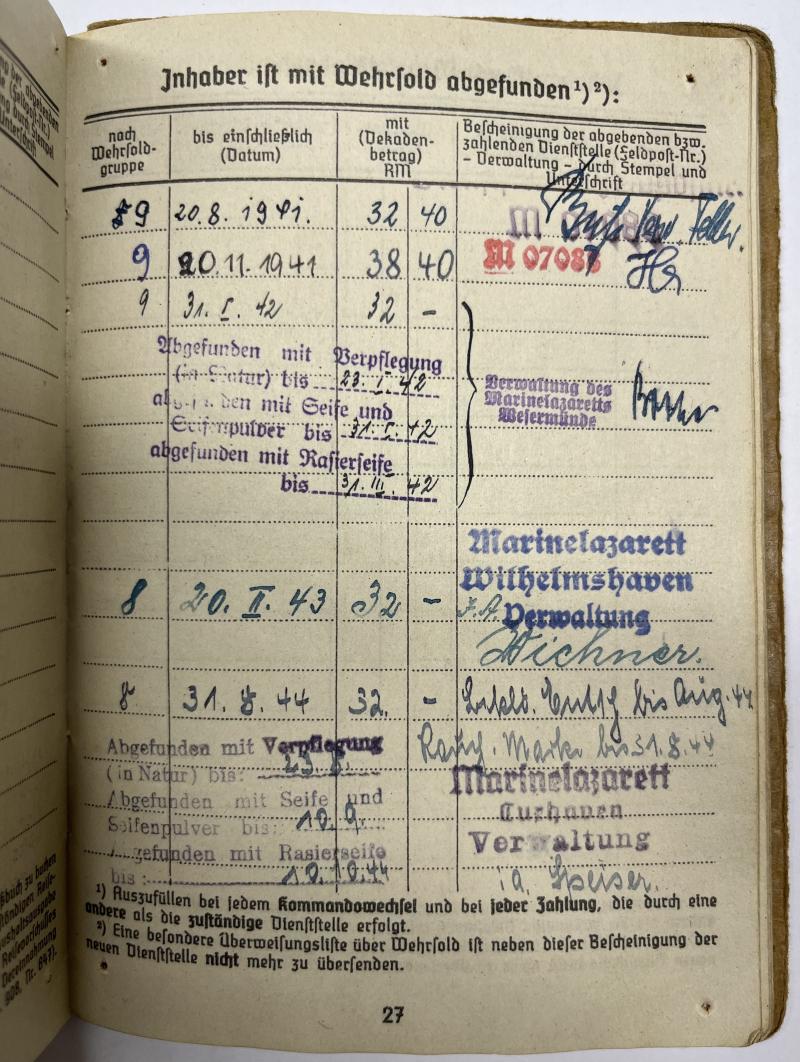 Inhaber ist mit Wehrsold abgefunden¹)²):
nach Wehrsold-gruppe
bis einschließlich (Datum)
mit (Dekaden-betrag) RM
Bescheinigung der abgebenden bzw. zahlenden Dienststelle (Feldpost-Nr.) – Verwaltung – durch Stempel und Unterschrift
9 20.8.1941. 32 40
9 20.11.1941 38 40 M 07087
9 31.I.42 32 –
Abgefunden mit Verpflegung
(in Natur) bis 23.I.42
abgefunden mit Seife und
Seifenpulver bis 31.I.42
abgefunden mit Rasierseife
bis 31.III.42
Verwaltung des
Marinelazaretts
Wesermünde
Marinelazarett
Wilhelmshaven
8 20.II.43 32 – Verwaltung
Wichner.
8 31.8.44 32. – bis Aug.44
Abgefunden mit Verpflegung
(in Natur) bis: 23.8.
Abgefunden mit Seife und
Seifenpulver bis: 10.9.
Abgefunden mit Rasierseife
bis: 10.10.44
Marke bis 31.8.44
Marinelazarett
Cuxhaven
Verwaltung
i.A. Speiser.
¹) Auszufüllen bei jedem Kommandowechsel und bei jeder Zahlung, die durch eine
andere als die zuständige Dienststelle erfolgt.
²) Eine besondere Überweisungsliste über Wehrsold ist neben dieser Bescheinigung der
neuen Dienststelle nicht mehr zu übersenden.
27